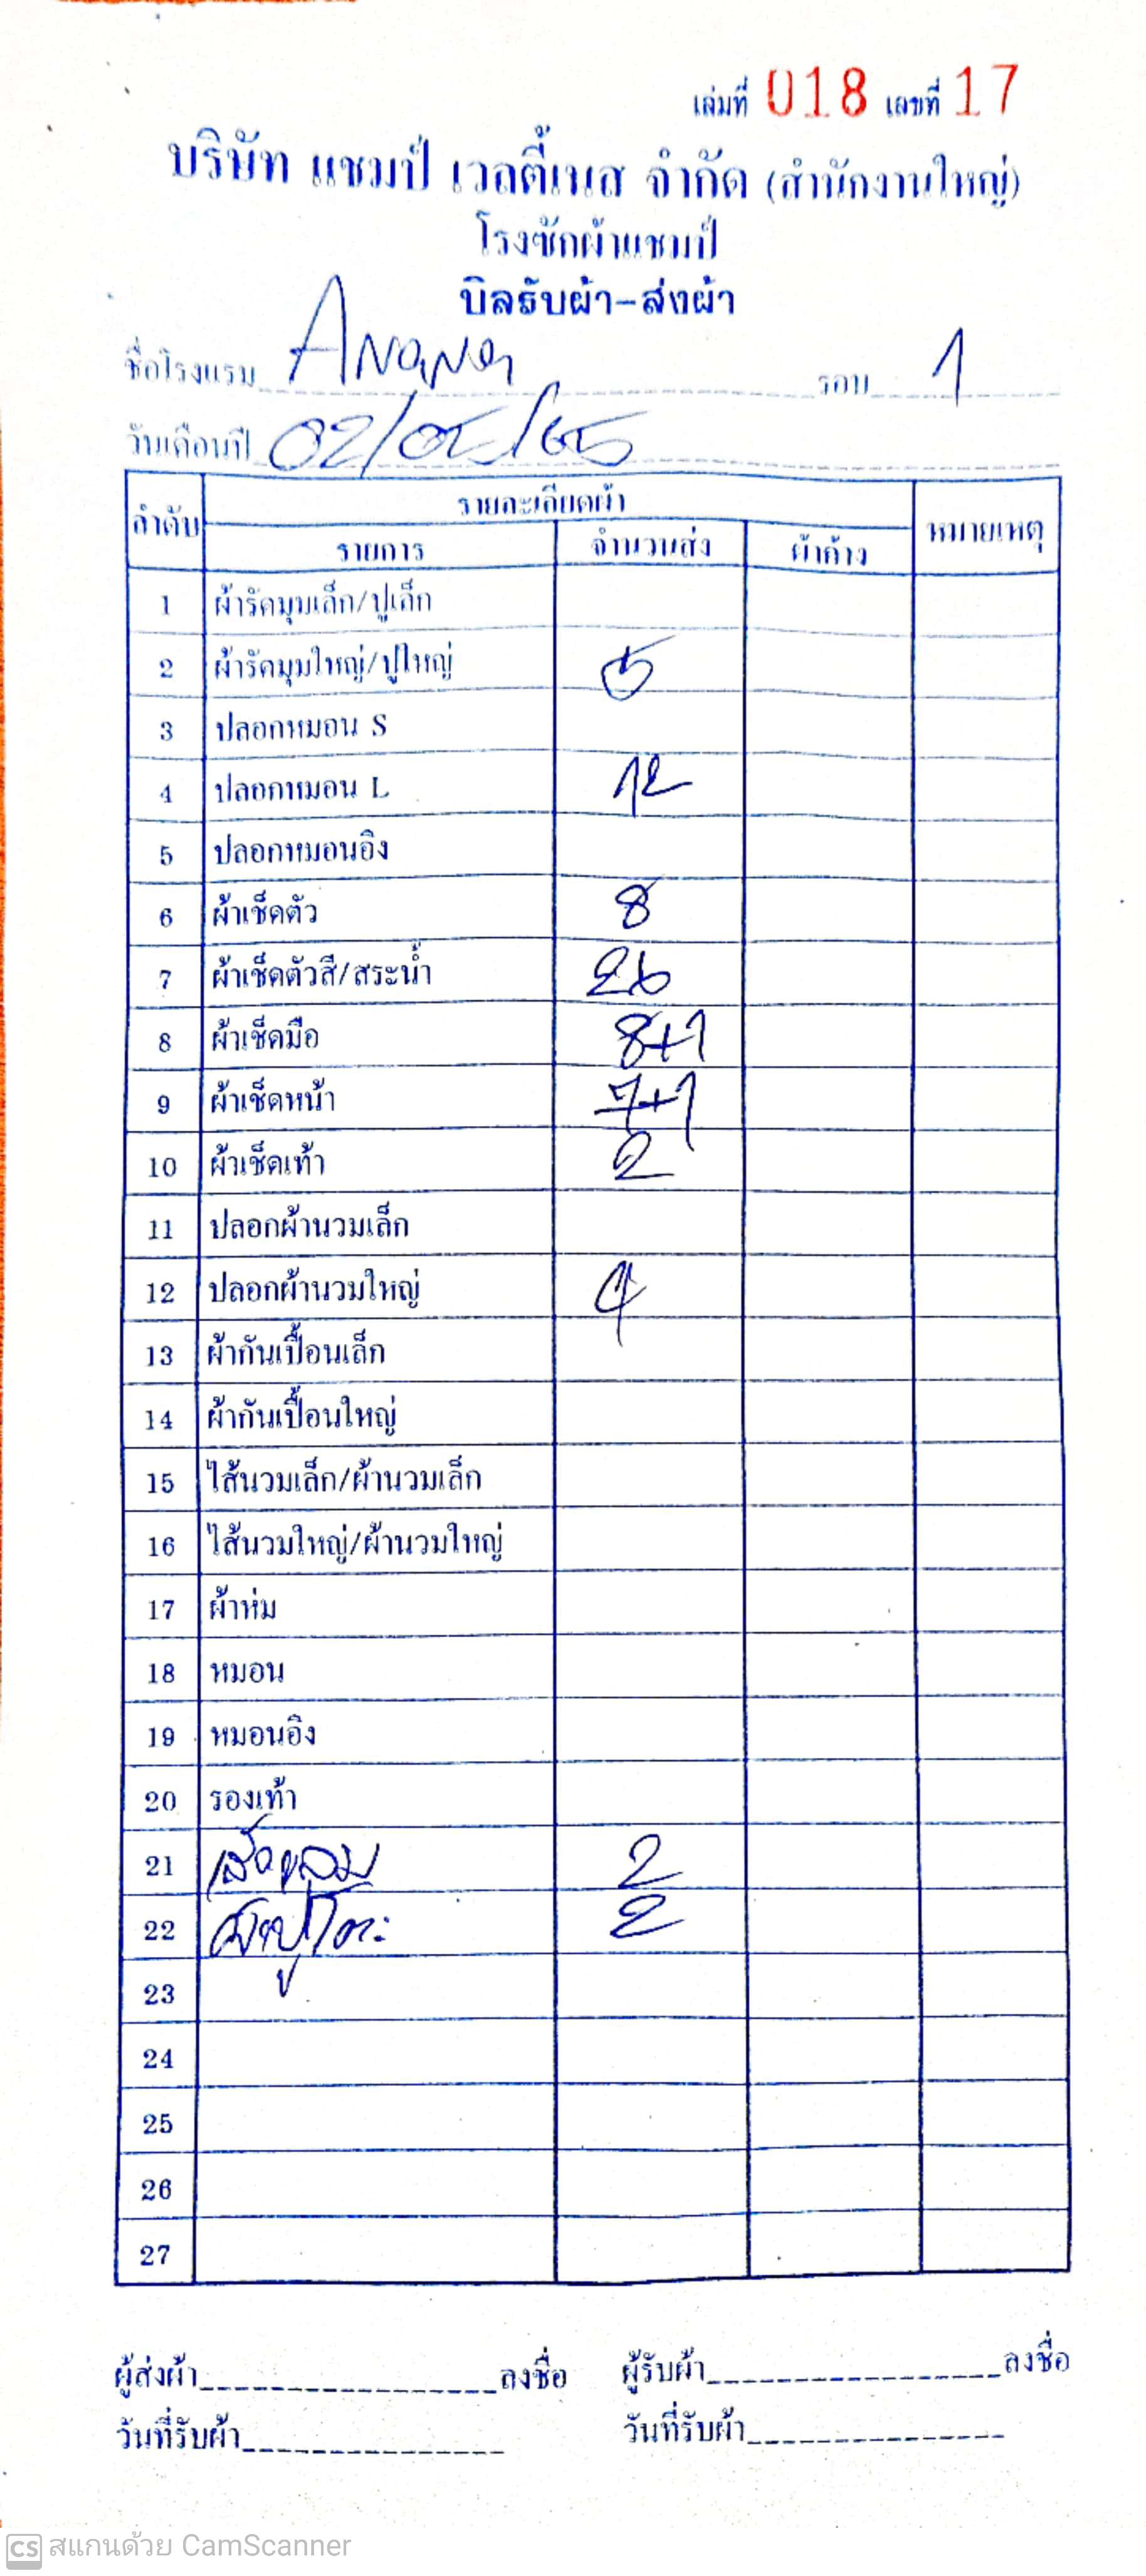 เล่มที่ 018 เลขที่ 17
บริษัท แชมป์ เวลตี้เนส จำกัด (สำนักงานใหญ่)
โรงซักผ้าแชมป์
บิลรับผ้า-ส่งผ้า
ชื่อโรงแรม Anana รอบ 1
วันเดือนปี 02/05/65
ลำดับ รายละเอียดผ้า หมายเหตุ
รายการ จำนวนส่ง ผ้าค้าง
1 ผ้ารัดมุมเล็ก/ปูเล็ก
2 ผ้ารัดมุมใหญ่/ปูใหญ่ 5
3 ปลอกหมอน S
4 ปลอกหมอน L 12
5 ปลอกหมอนอิง
6 ผ้าเช็ดตัว 8
7 ผ้าเช็ดตัวสี/สระน้ำ 26
8 ผ้าเช็ดมือ 8+1
9 ผ้าเช็ดหน้า 7+1
10 ผ้าเช็ดเท้า 2
11 ปลอกผ้านวมเล็ก
12 ปลอกผ้านวมใหญ่ 4
13 ผ้ากันเปื้อนเล็ก
14 ผ้ากันเปื้อนใหญ่
15 ไส้นวมเล็ก/ผ้านวมเล็ก
16 ไส้นวมใหญ่/ผ้านวมใหญ่
17 ผ้าห่ม
18 หมอน
19 หมอนอิง
20 รองเท้า
21 เสื้อคลุม 2
22 ผ้าปูโต๊ะ 2
23
24
25
26
27
ผู้ส่งผ้า ลงชื่อ ผู้รับผ้า ลงชื่อ
วันที่รับผ้า วันที่รับผ้า
CS สแกนด้วย CamScanner